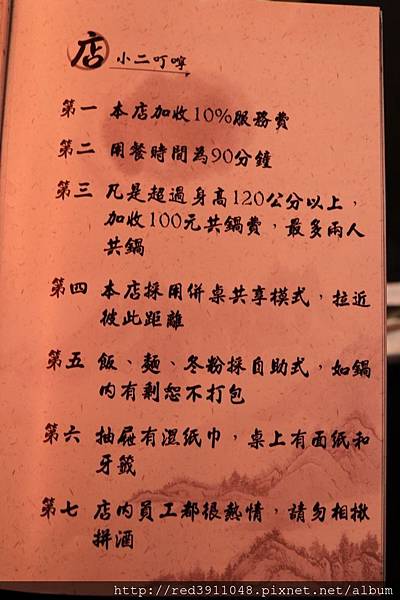 店小二叮嚀
第一 本店加收10%服務費
第二 用餐時間為90分鐘
第三 凡是超過身高120公分以上，
加收100元共鍋費，最多兩人
共鍋
第四 本店採用併桌共享模式，拉近
彼此距離
第五 飯、麵、冬粉採自助式，如鍋
內有剩恕不打包
第六 抽屜有濕紙巾，桌上有面紙和
牙籤
第七 店內員工都很熱情，請勿相揪
拼酒
http://red3911048.pixnet.net/album